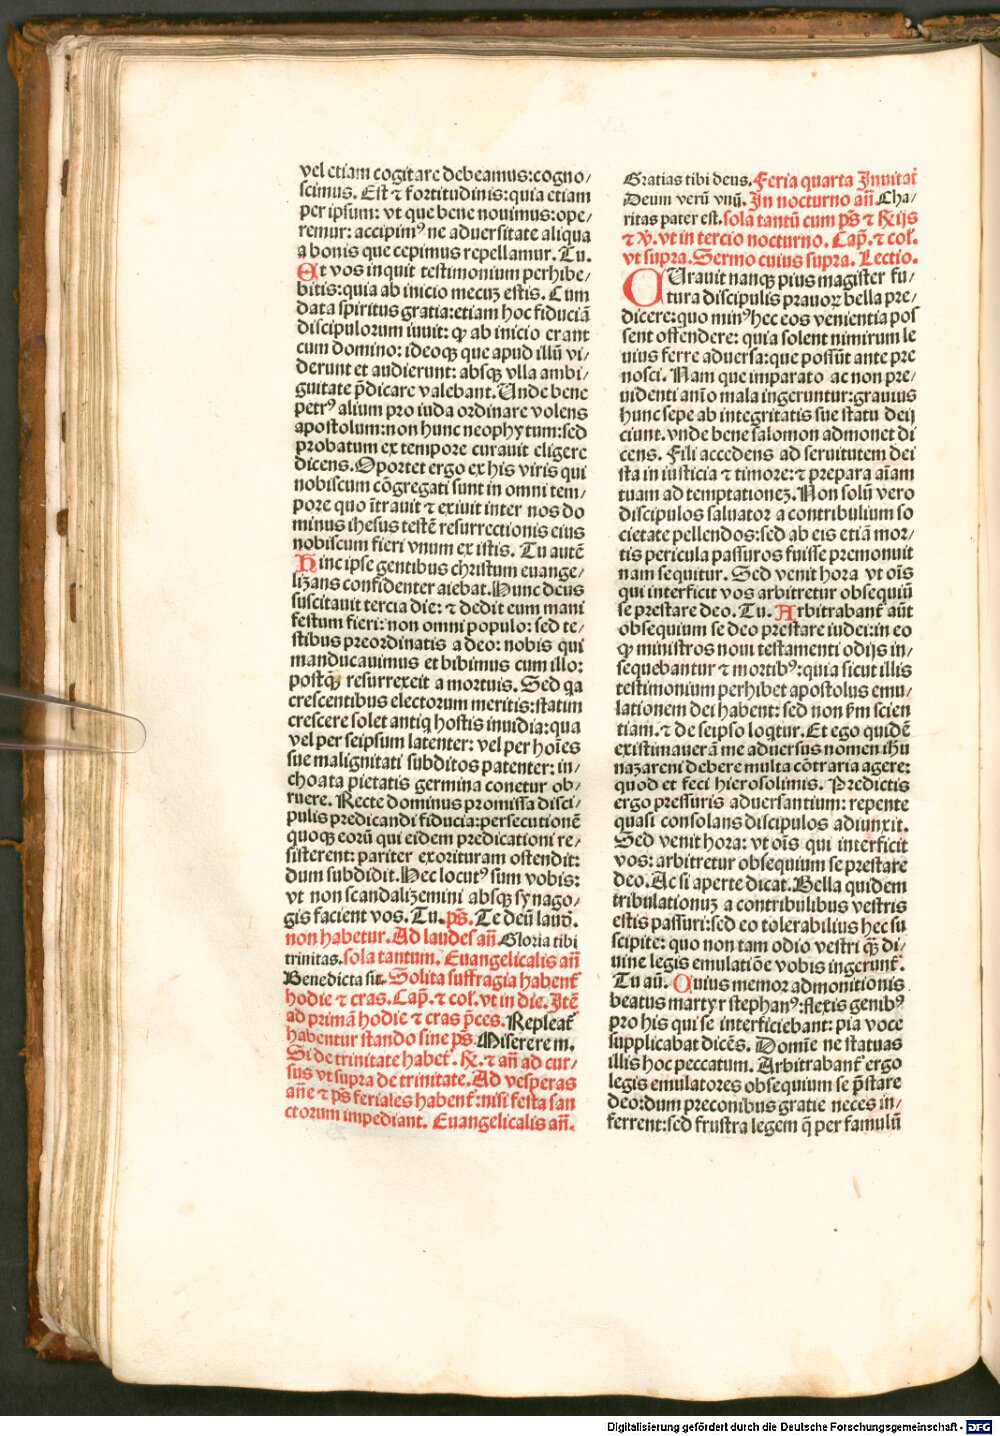 vel etiam cogitare debeamus:cogno/
scimus. Est ⁊ fortitudinis:quia etiam
per ipsum: vt que bene nouimus:ope/
remur: accipimꝰ ne aduersitate aliqua
a bonis que cepimus repellamur. Tu.
Et vos inquit testimonium perhibe/
bitis:quia ab inicio mecuꝫ estis. Cum
data spiritus gratia:etiam hoc fiduciā
discipulorum iuuit: ꝙ ab inicio erant
cum domino: ideoqꝫ que apud illū vi/
derunt et audierunt: absqꝫ vlla ambi/
guitate p̄dicare valebant. Unde bene
petrꝰ alium pro iuda ordinare volens
apostolum:non hunc neophytum:sed
probatum ex tempore curauit eligere
dicens. Oportet ergo ex his viris qui
nobiscum cōgregati sunt in omni tem/
pore quo ītrauit ⁊ exiuit inter nos do
minus ihesus testē resurrectionis eius
nobiscum fieri vnum ex istis. Tu autē
Hinc ipse gentibus christum euange/
lizans confidenter aiebat. Hunc deus
suscitauit tercia die: ⁊ dedit eum mani
festum fieri: non omni populo: sed te/
stibus preordinatis a deo: nobis qui
manducauimus et bibimus cum illo:
postqꝫ resurrexeit a mortuis. Sed qa
crescentibus electorum meritis:statim
crescere solet antiq hostis inuidia: qua
vel per seipsum latenter: vel per hoīes
sue malignitati subditos patenter: in/
choata pietatis germina conetur ob/
ruere. Recte dominus promissa disci/
pulis predicandi fiducia:persecutionē
quoqꝫ eorū qui eidem predicationi re/
sisterent: pariter exorituram ostendit:
dum subdidit. Hec locutꝰ sum vobis:
vt non scandalizemini absqꝫ synago/
gis facient vos. Tu. ps̄. Te deū laud̄.
non habetur. Ad laudes añ Gloria tibi
trinitas. sola tantum. Euangelicalis añ
Benedicta sit. Solita suffragia habent̄
hodie ⁊ cras. Cap̄. ⁊ col̄. vt in die. Itē
ad primā hodie ⁊ cras p̄ces. Repleat̄
habentur stando sine ps̄. Miserere m.
Si de trinitate habet̄. R̄. ⁊ añ ad cur/
sus vt supra de trinitate. Ad vesperas
añe ⁊ ps̄ feriales habent̄: nisi festa san
ctorum impediant. Euangelicalis añ.
Gratias tibi deus. Feria quarta Inuitat̄
Deum verū vnū. In nocturno añ Cha/
ritas pater est. sola tantū cum ps̄ ⁊ R̄ijs
⁊ v̄. vt in tercio nocturno. Cap̄. ⁊ col̄.
vt supra. Sermo cuius supra. Lectio.
CUrauit nanqꝫ pius magister fu/
tura discipulis prauoꝝ bella pre/
dicere: quo minꝰ hec eos venientia pos
sent offendere: quia solent nimirum le
uius ferre aduersa: que possūt ante pre
nosci. Nam que imparato ac non pre/
uidenti anīo mala ingeruntur: grauius
hunc sepe ab integritatis sue statu deij
ciunt. vnde bene salomon admonet di
cens. Fili accedens ad seruitutem dei
sta in iusticia ⁊ timore: ⁊ prepara aīam
tuam ad temptationeꝫ. Non solū vero
discipulos saluator a contribulium so
cietate pellendos: sed ab eis etiā mor/
tis pericula passuros fuisse premonuit
nam sequitur. Sed venit hora vt oīs
qui interficit vos arbitretur obsequiū
se prestare deo. Tu. Arbitrabant̄ aūt
obsequium se deo prestare iudei: in eo
ꝙ ministros noui testamenti odijs in/
sequebantur ⁊ mortibꝰ: quia sicut illis
testimonium perhibet apostolus emu/
lationem dei habent: sed non s̄m scien
tiam. ⁊ de seipso loqtur. Et ego quidē
existimauerā me aduersus nomen ihū
nazareni debere multa cōtraria agere:
quod et feci hierosolimis. Predictis
ergo pressuris aduersantium: repente
quasi consolans discipulos adiunxit.
Sed venit hora: vt oīs qui interficit
vos: arbitretur obsequium se prestare
deo. Ac si aperte dicat. Bella quidem
tribulationuꝫ a contribulibus vestris
estis passuri: sed eo tolerabilius hec su
scipite: quo non tam odio vestri qꝫ di/
uine legis emulatiōe vobis ingerunt̄.
Tu aū. Cuius memor admonitionis
beatus martyr stephanꝰ: flexis genibꝰ
pro his qui se interficiebant: pia voce
supplicabat dicēs. Domīe ne statuas
illis hoc peccatum. Arbitrabant̄ ergo
legis emulatores obsequium se p̄stare
deo: dum preconibus gratie neces in/
ferrent: sed frustra legem q̄ per famulū
Digitalisierung gefördert durch die Deutsche Forschungsgemeinschaft - DFG